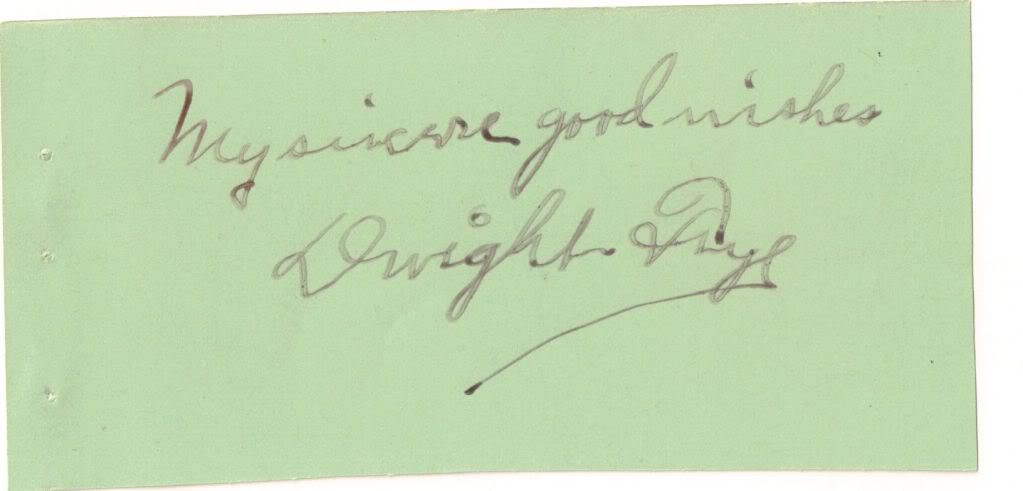 My sincere good wishes
Dwight Frye